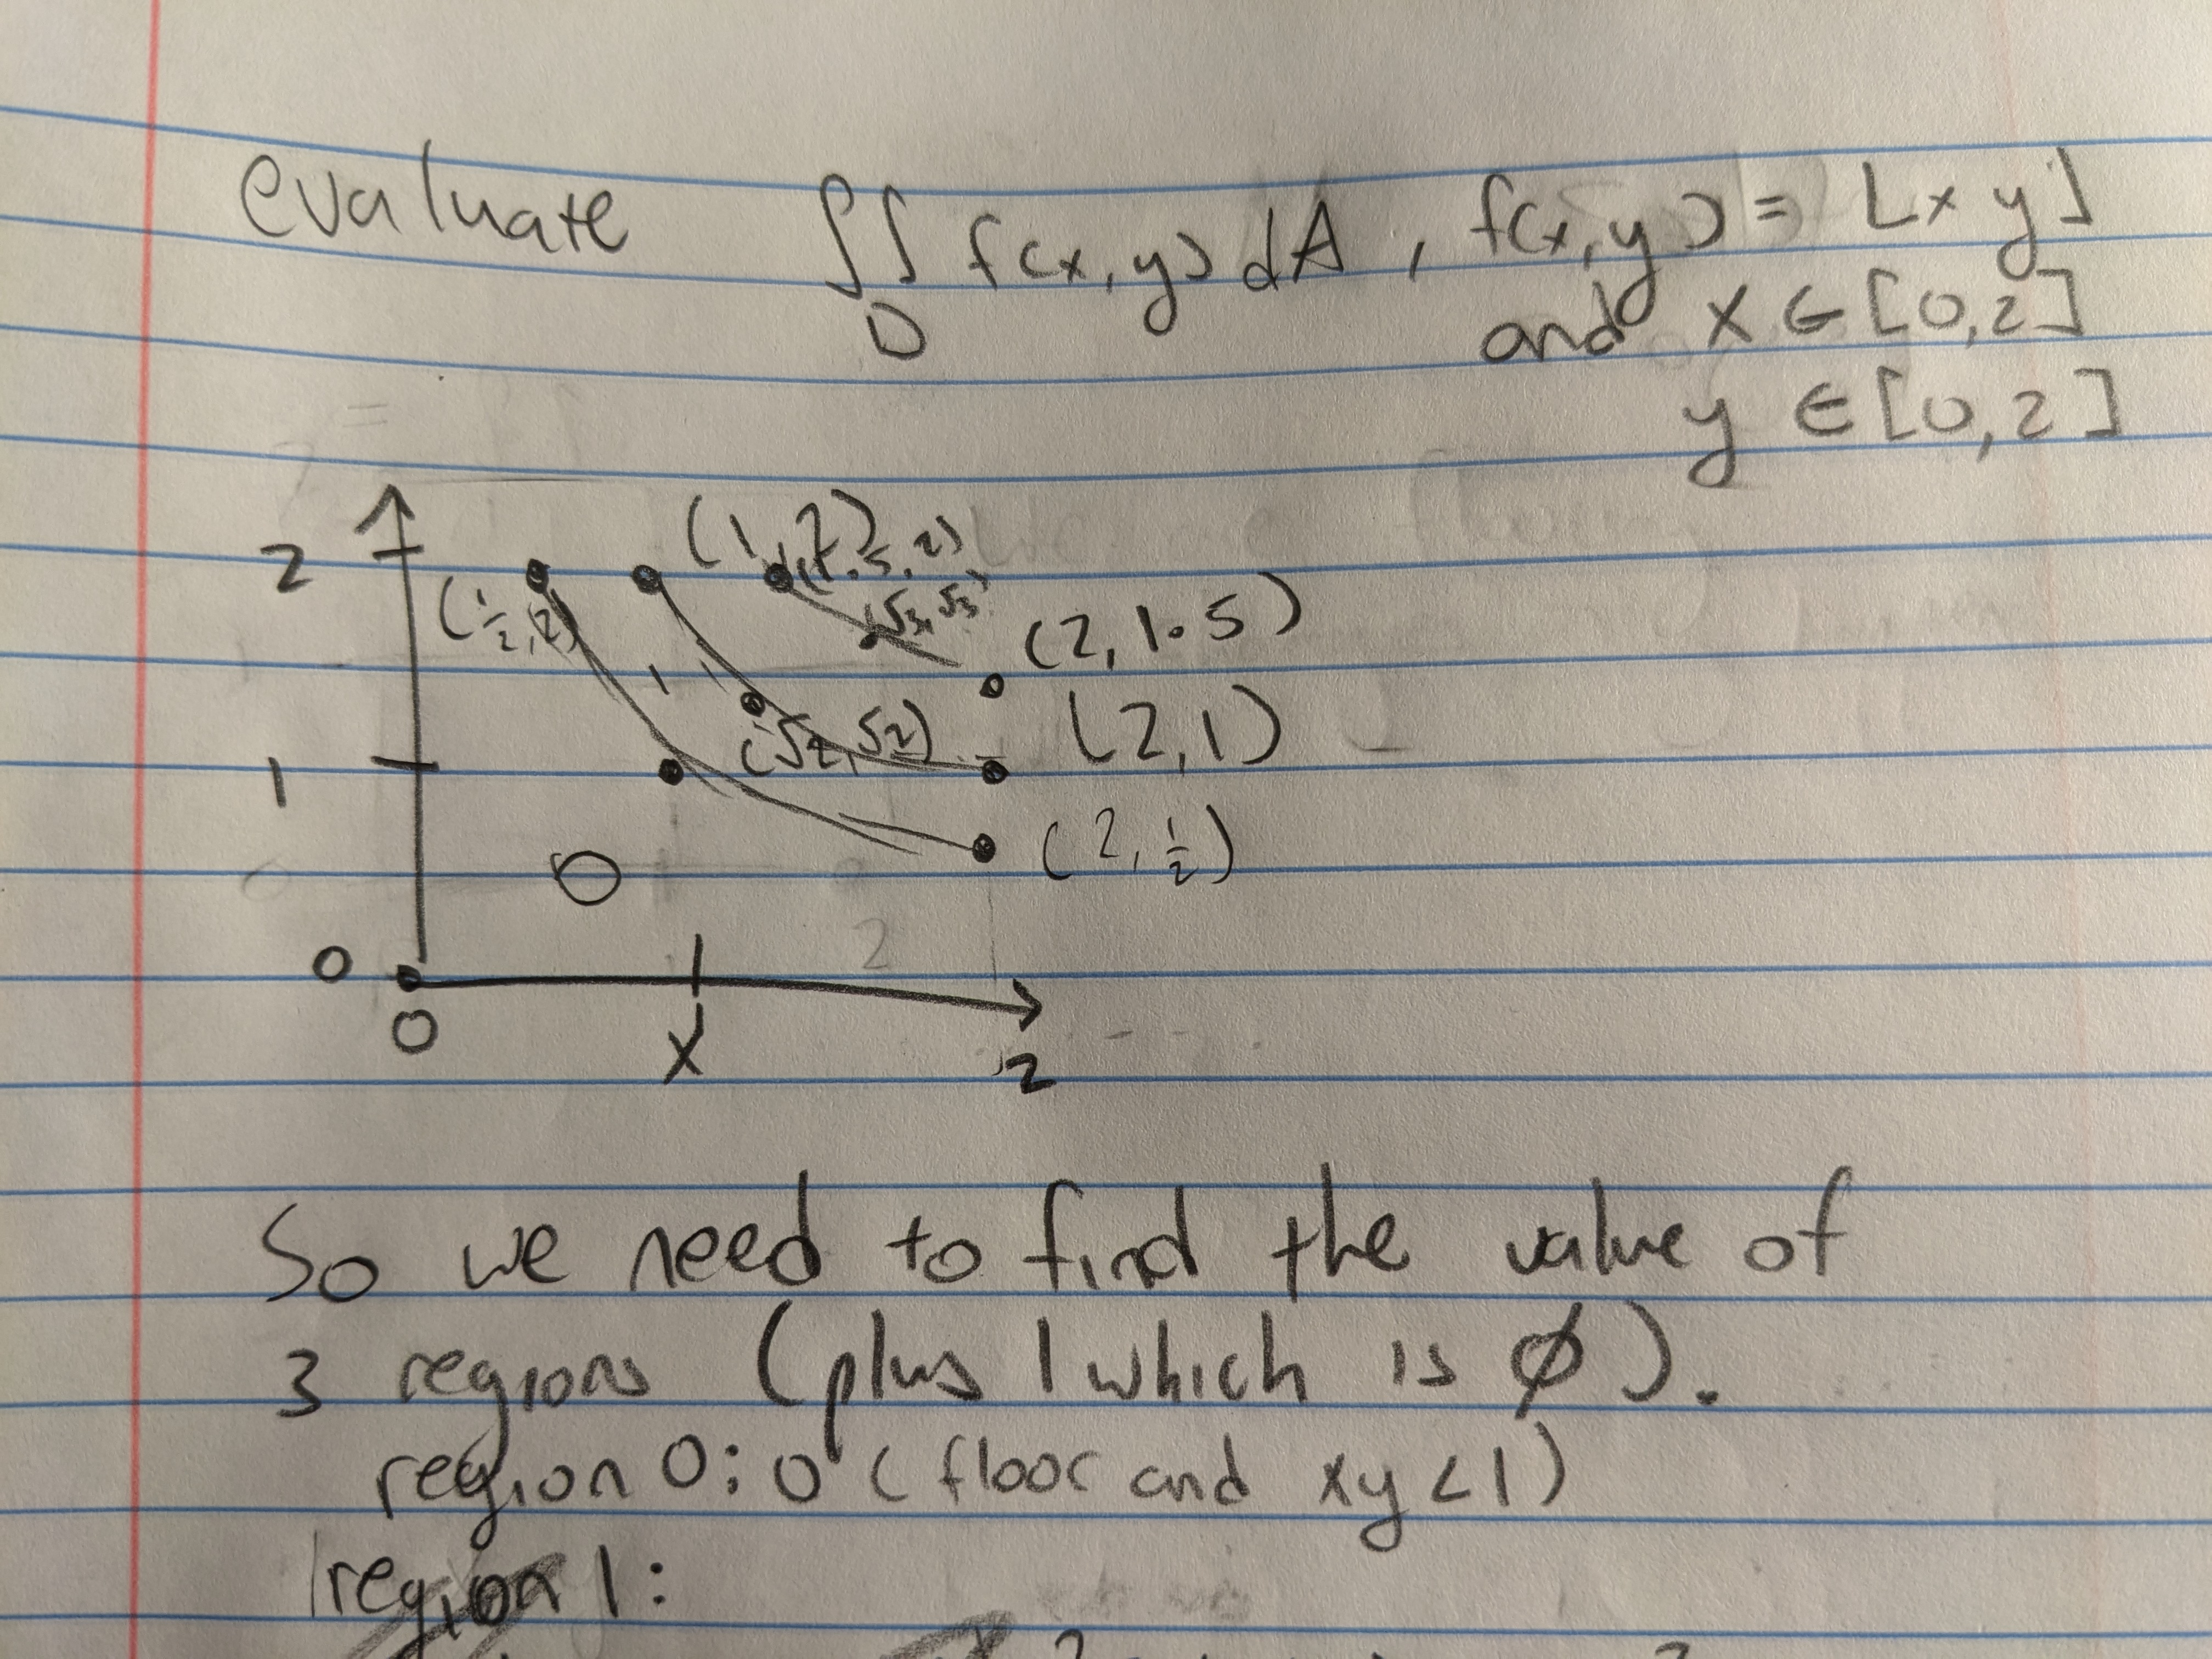 evaluate ∬ f(x,y) dA, f(x,y) = ⌊xy⌋
D
and x ∈ [0,2]
y ∈ [0,2]
2
(1/2,2)
(1,2)
(1.5,2)
(√3,√3)
(2,1.5)
(√2,√2)
(2,1)
1
(2,1/2)
0
0
0
1
x
2
So we need to find the value of
3 regions (plus 1 which is ∅).
region 0: 0 (floor and xy<1)
region 1: